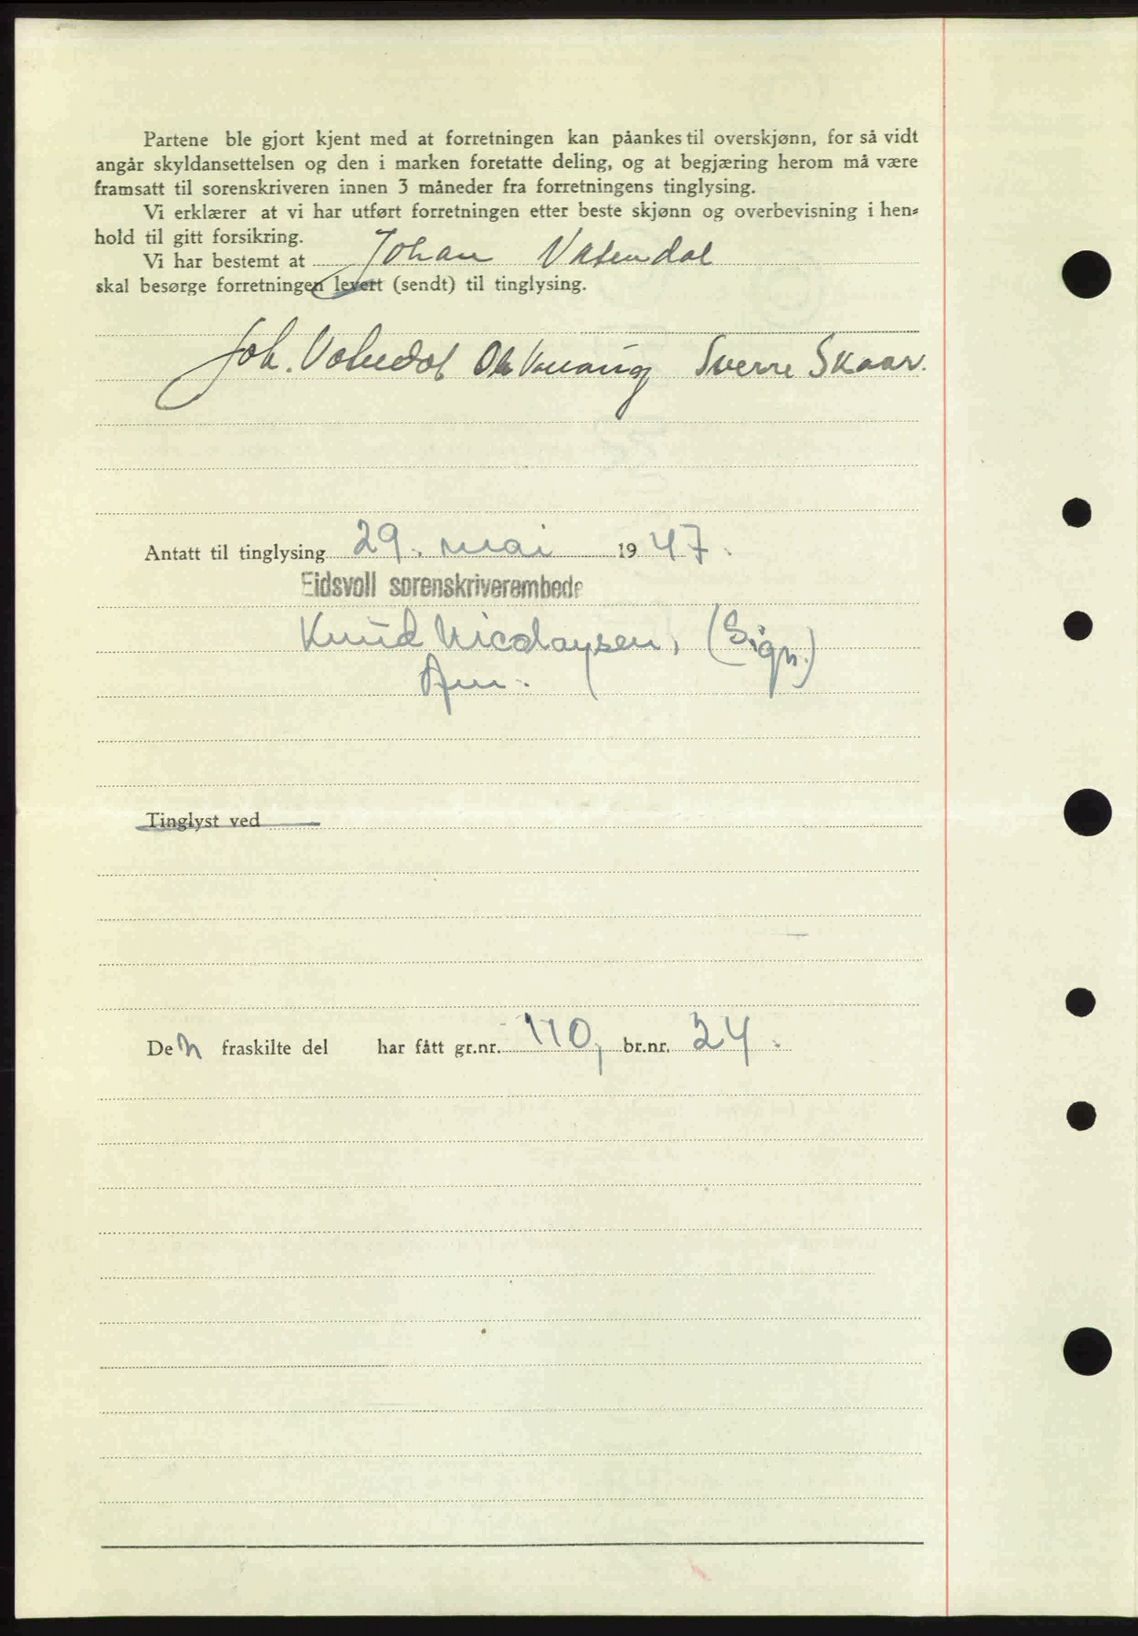 Partene ble gjort kjent med at forretningen kan påankes til overskjønn, for så vidt
angår skyldansettelsen og den i marken foretatte deling, og at begjæring herom må være
framsatt til sorenskriveren innen 3 måneder fra forretningens tinglysing.
Vi erklærer at vi har utført forretningen etter beste skjønn og overbevisning i hen-
hold til gitt forsikring.
Vi har bestemt at Johan Vatendal
skal besørge forretningen levert (sendt) til tinglysing.
Joh. Sverre Skaar.
Antatt til tinglysing 29. mai 1947.
Eidsvoll sorenskriverembede
Knud Nicolaysen, (Sign.)
Tinglyst ved
Den fraskilte del har fått gr.nr. 110, br.nr. 24.